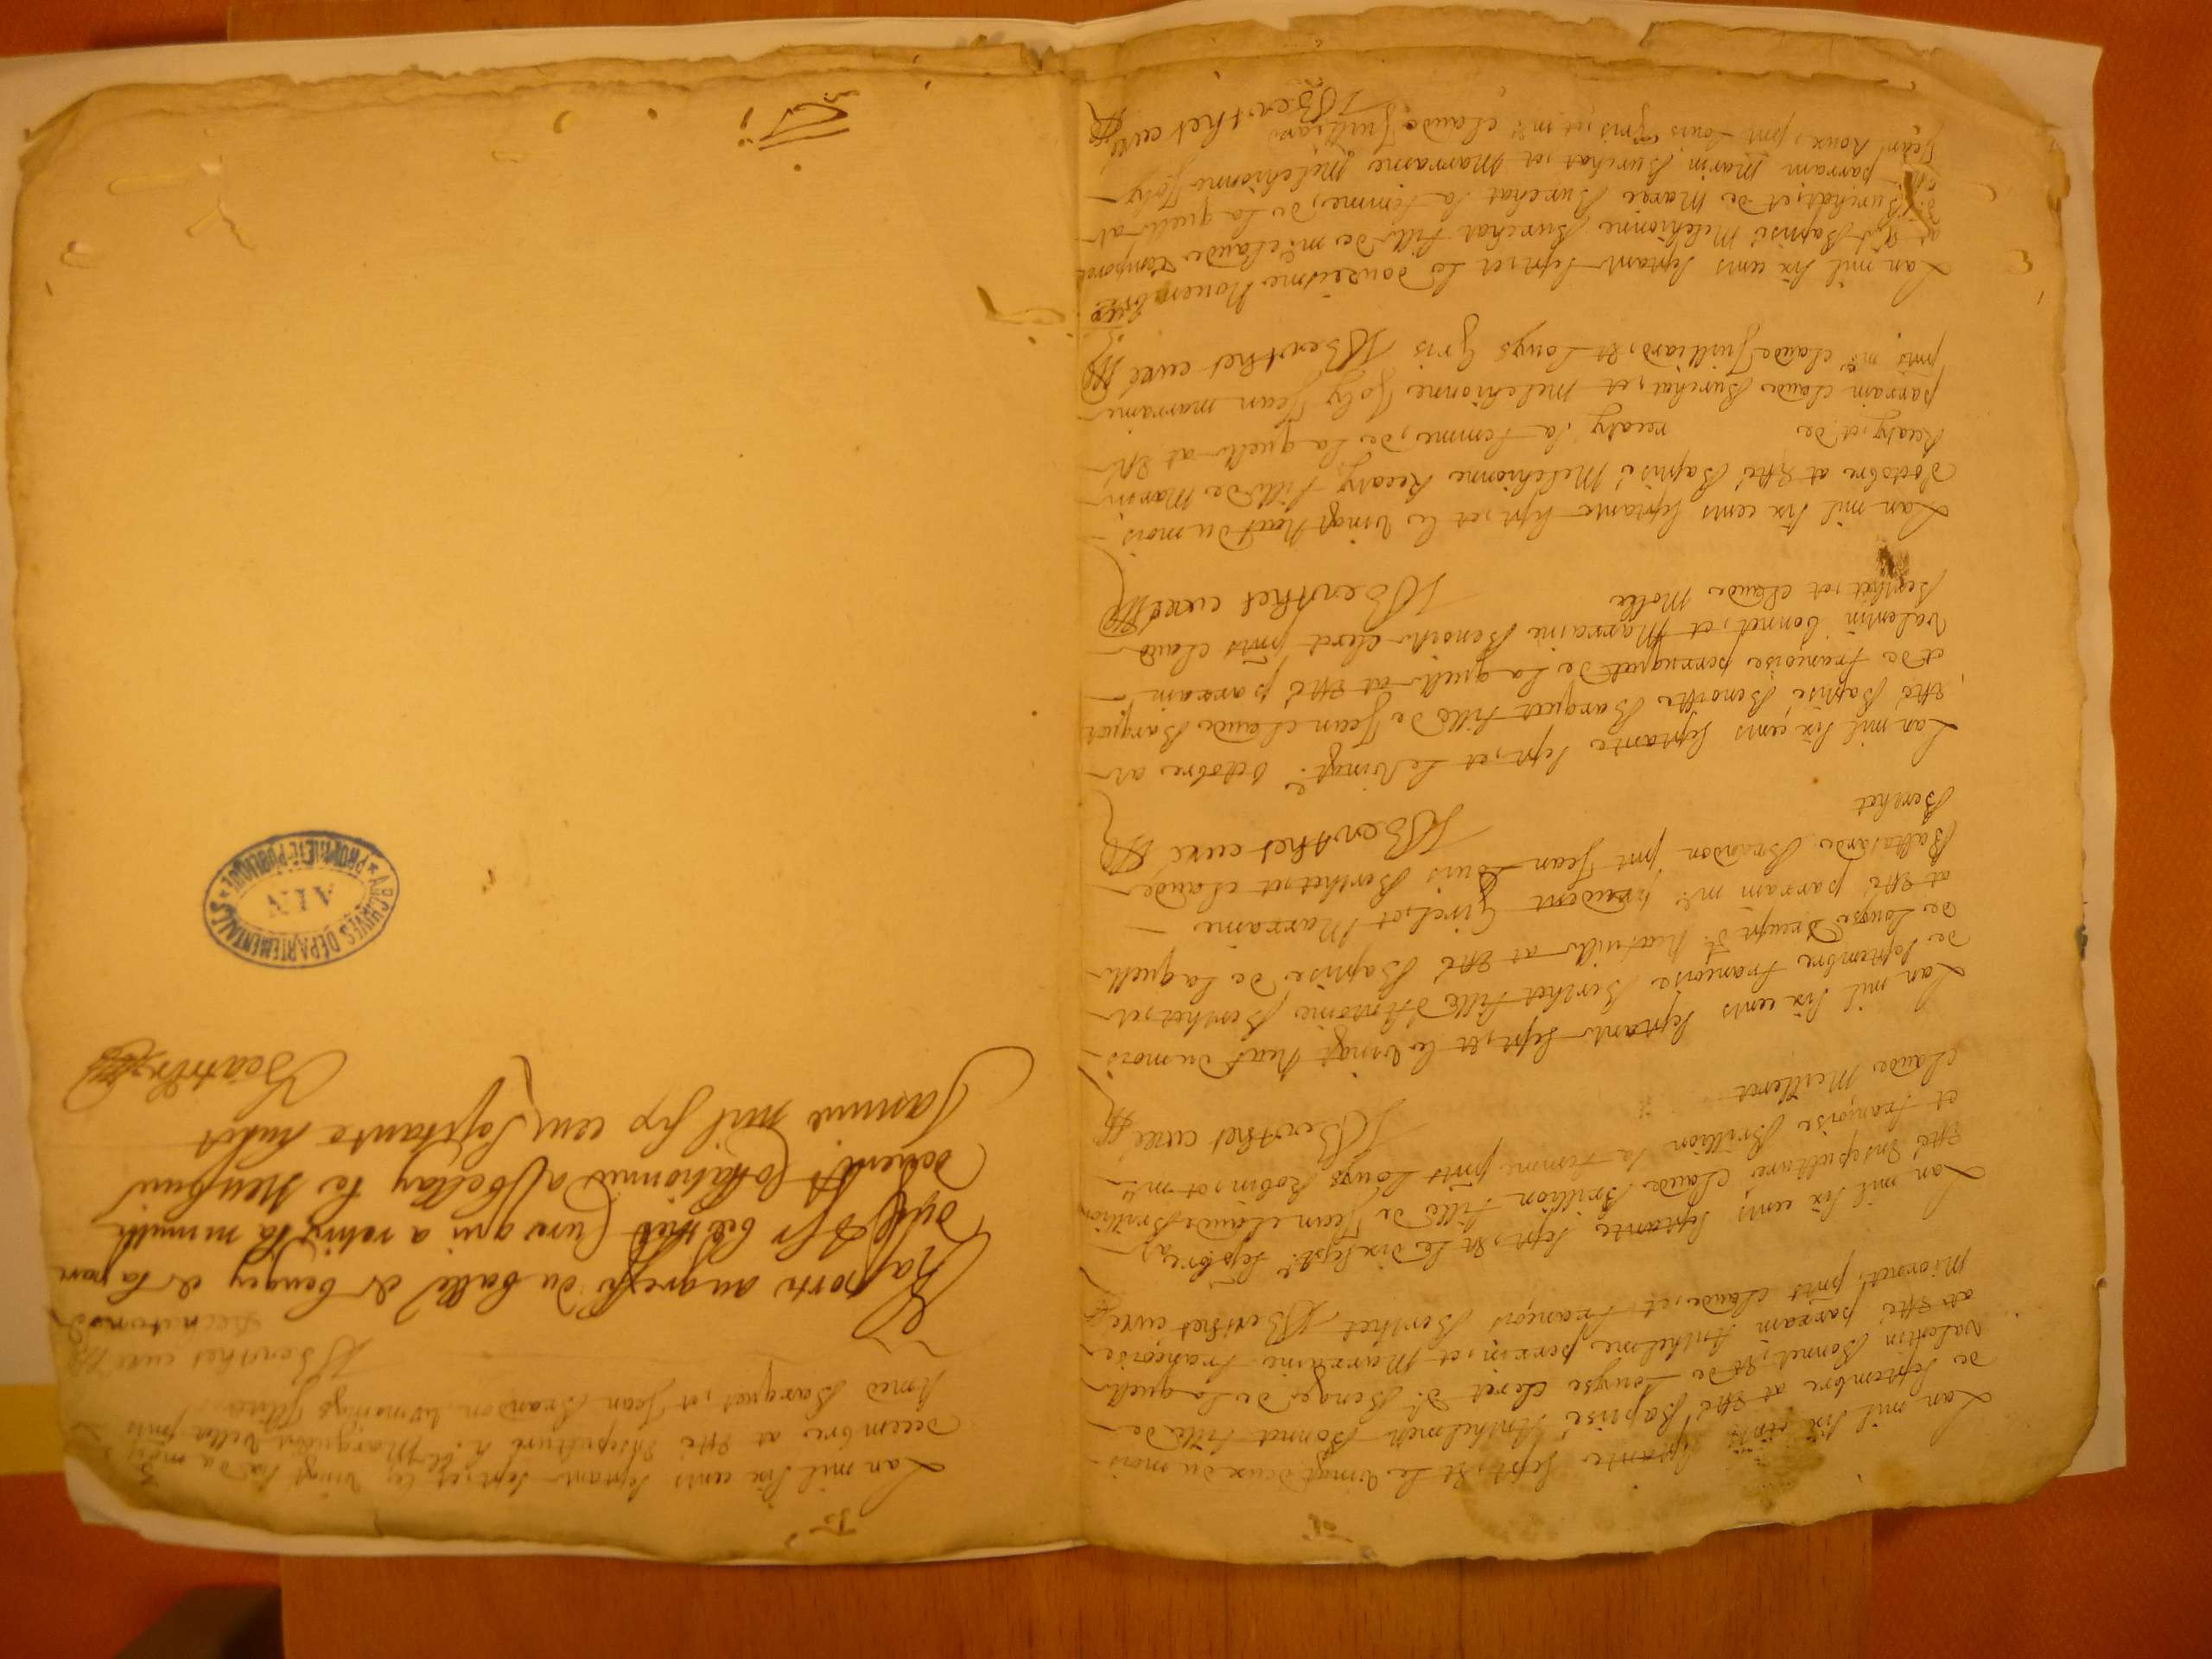 Lan mil six cents septante sept, et le vingt deux du mois
de septembre at esté Baptisé Anthelmen Bonnet fille de
valentin Bonnet, et de Louyse Cleret d. Benges de Laquelle
at esté parram Anthelme perrin, et Marraine françoise
Miornet, pnts claude, et françois Berthet JBerthet curé
Lan mil six cents septante sept, et Le dixsept.e sepbre at
esté Ensepulturé claude Brillion fille de Jean claude Brillion
et françoise Brillion sa femme pnts Louys Robin, et m.re
claude Meilleret
JBerthet curé
Lan mil six cents septante sept, et le vingt neuf du mois
de septembre françoise Berthet fille d'Antoine Berthet, et
de Louyse at esté Baptisé de Laquelle
at esté parram m.re prudent Giret, et Marraine
Baltasarde Brandon pnt Jean Louis Berthet, et claude
Berthet
JBerthet curé
Lan mil six cents septante sept, et Le vingt.e octobre at
esté Baptisé Benoitte Barquet fille de Jean claude Barquet
et de françoise perruquet de Laquelle at esté parram
valentin bonnet, et Marraine Benoitte cleret pnts claude
Berthet, et claude Mollie
JBerthet curé
Lan mil six cents septante sept, et le vingt neuf du mois
d'octobre at esté Baptisé Melchionne Recaty fille de Marin
Recaty, et de recaty sa femme, de Laquelle at esté
parrain claude Burchat, et Melchionne Joly Jean marraine
pnts m.re claude Juilliard, et Louys Gris JBerthet curé
Lan mil six cents septante sept, et Le douzeisme Nouembre
at esté Baptisé Melchionne Burchat fille de m.re claude
Burchat, et de Marie Burchat sa femme, de Laquelle at
parram Marin Burchat, et Marraine Melchionne Joly
Jean Roux, pnt Louis Gris, et m.re claude Juilliard
JBerthet curé
Lan mil six cents septante sept, et le vingt du mois
decembre at esté Ensepulturé h. ble Marguerite Vellet pnts
Amed Barquet, et Jean Brandon
JBerthet curé
Raporté au greffe du balle de beugey de la part
dud. Sr berthet Curé qui a retiré la minutte
Collationnée a belley le neufuie
Januie mil six cent septante huict
Beatrix
ARCHIVES DÉPARTEMENTALES
AIN
PROPRIÉTÉ PUBLIQUE